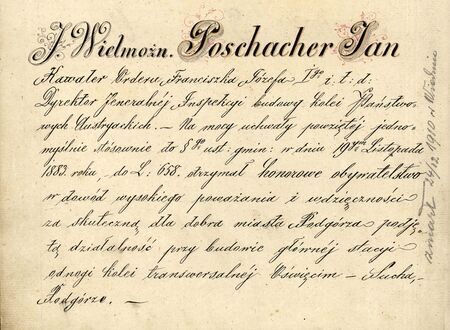 J. Wielmożn. Poschacher Jan
Kawaler Orderu Franciszka Józefa Igo i. t. d:
Dyrektor Jeneralnéj Inspekcyi budowy kolei Państwo-
wych Austryackich. – Na mocy uchwały powziętéj jedno-
myślnie stosownie do § 8 ust: gmin: w dniu 19tym Listopada
1883. roku, do L: 658. otrzymał honorowe obywatelstwo
w dowód wysokiego poważania i wdzięczności
za skuteczną dla dobra miasta Podgórza podję-
tą działalność przy budowie głównéj stacyi
odnogi kolei transwersalnéj Oświęcim – Sucha,
Podgórze. –
umarł 24/12 1910 w Wiedniu